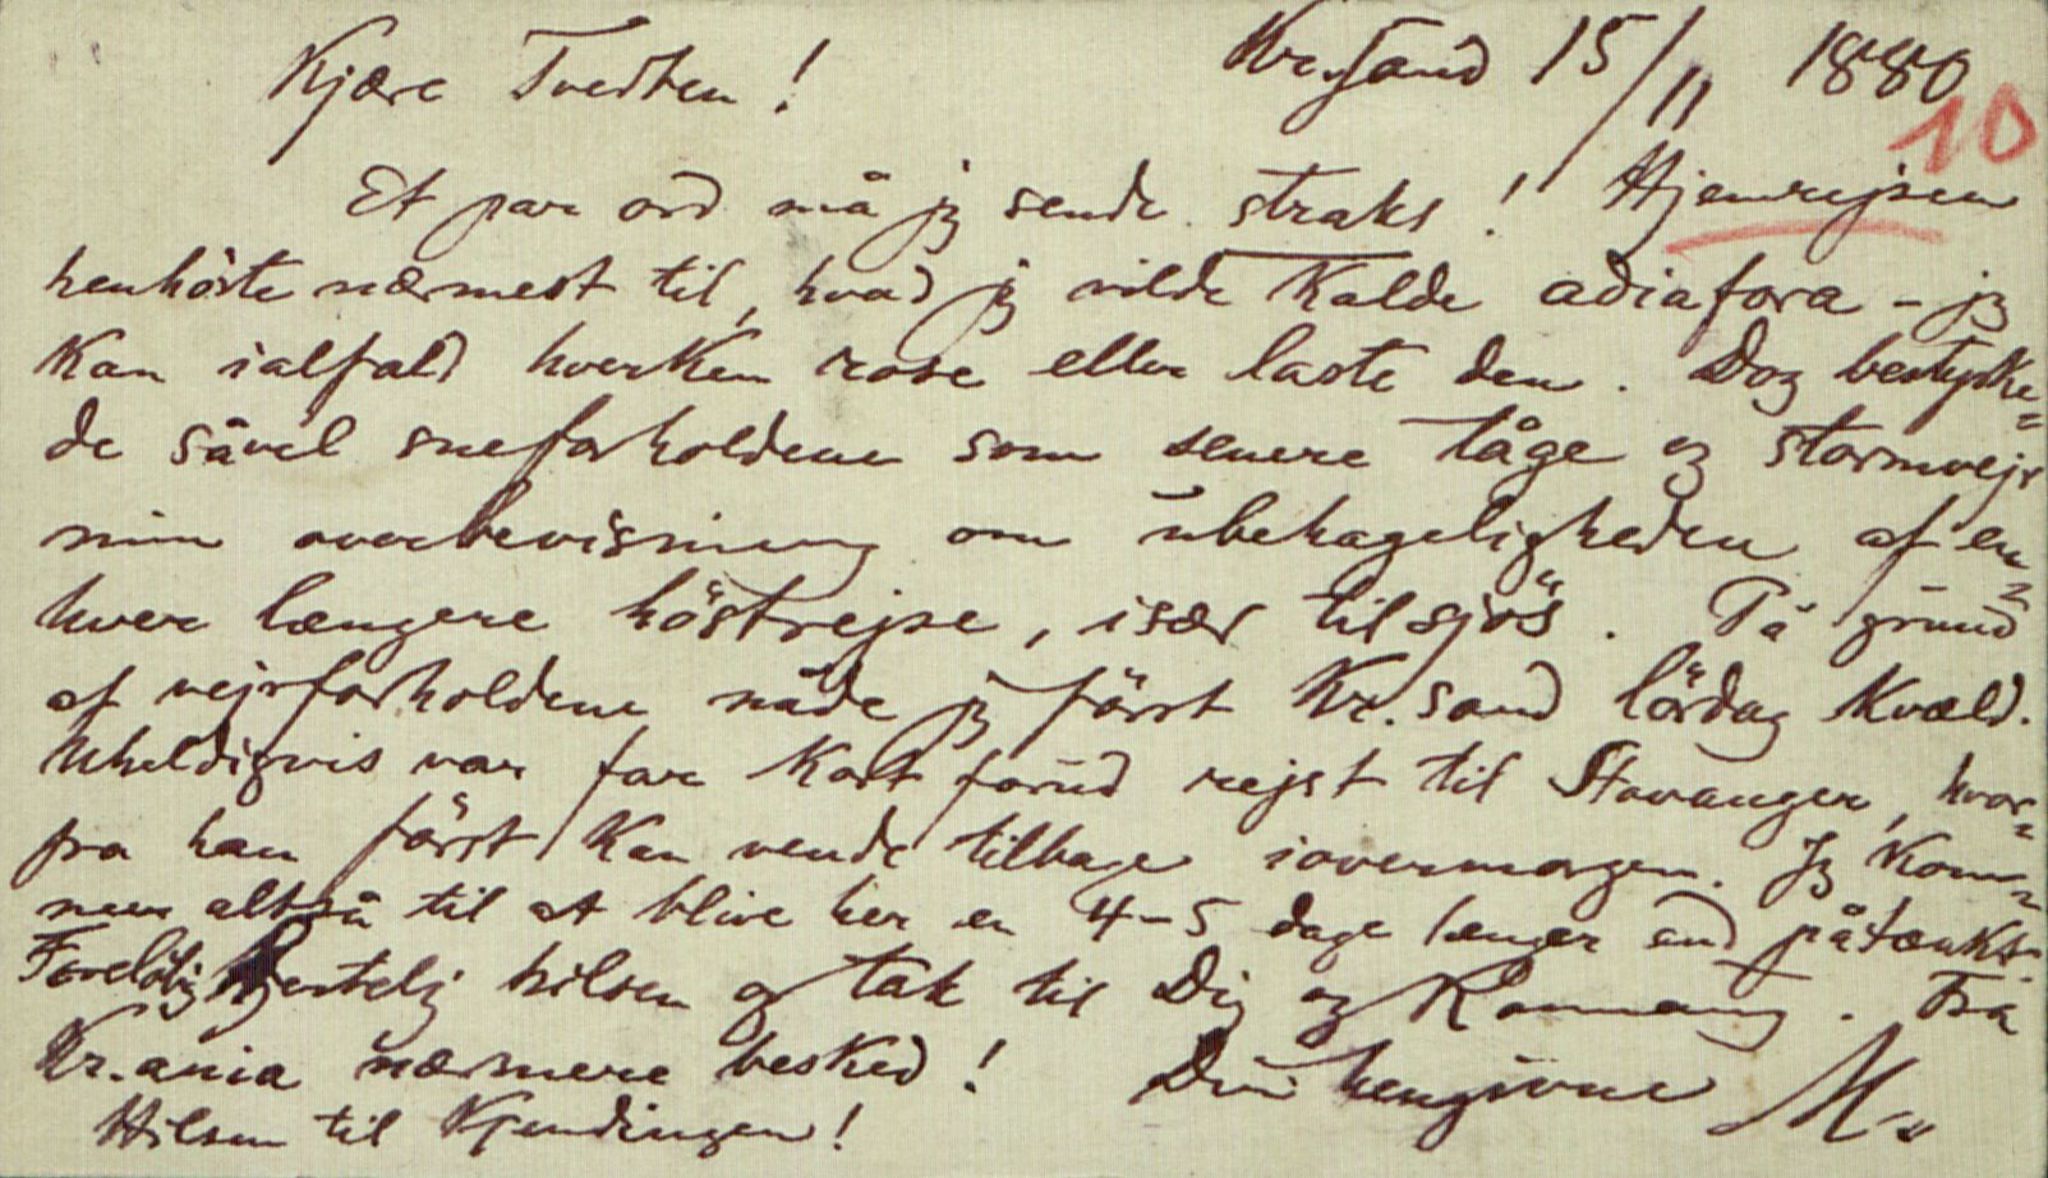 Kr.sand 15/11 1880
10
Kjære Tvedten!
Et par ord må jeg sende straks! Hjemrejsen
henhörte nærmest til, hvad jeg vilde kalde adiafora – jeg
kan ialfald hverken rose eller laste den. Dog bestyrke=
de såvel sneforholdene som senere tåge og stormvejr
min overbevisning om ubehageligheden af en=
hver længere höstrejse, især tilsjös. På grund
af vejrforholdene nåde jeg först Kr.sand lördag kvæld.
Uheldigvis var far kort forud rejst til Stavanger, hvor=
fra han först kan vende tilbage iovermorgen. Jeg kom=
mer altså til at blive her en 4-5 dage længer end påtænkt.
Forelöbig hjertelig hilsen og tak til Dig og Komang. Fra
Kr.ania nærmere besked! Din hengivne M.
Hilsen til Kjendingen!